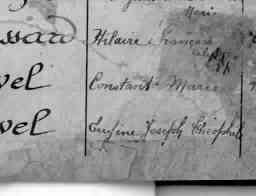 Marie
ssard Hilaire François
vel Constant Marie
vel Eugène Joseph Théophile